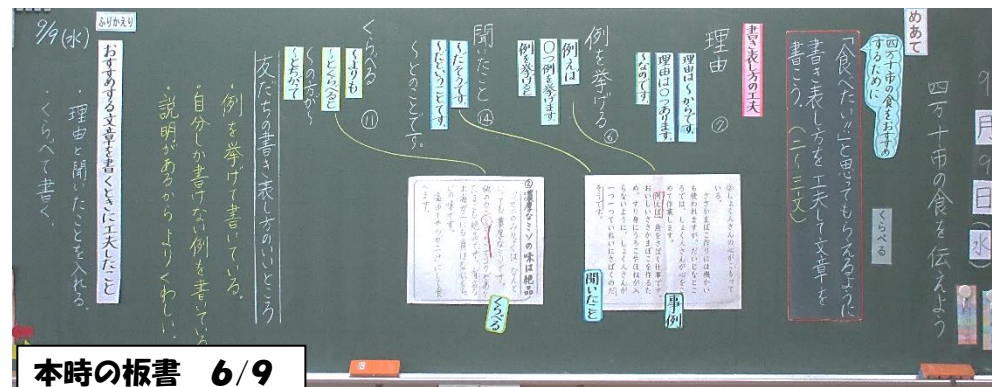 9月9日(水)
四万十市の食を伝えよう
めあて
四万十市の食をおすすめ
するために
くらべる
「食べたい!!」と思ってもらえるように
書き表し方を工夫して文章を
書こう。(二~三文)
書き表し方の工夫
理由
⑦
理由は~からです。
理由は〇つあります。
~なのです。
例を挙げる
⑥
例えば
〇つ例を挙げます
例を挙げると
聞いたこと
⑭
~だそうです。
~だということです。
~とのことです。
くらべる
⑪
~よりも
~とくらべると
~の方が~
~とちがって
②しょく人さんの心がこもって
いる。
事例
聞いたこと
②濃厚なミソの味は絶品
くらべる
友だちの書き表し方のいいところ
・例を挙げて書いている。
・自分しか書けない例を書いている
・説明があるから よりくわしい。
ふりかえり
おすすめする文章を書くときに工夫したこと
・理由と聞いたことを入れる。
・くらべて書く。
9/9(水)
本時の板書 6/9